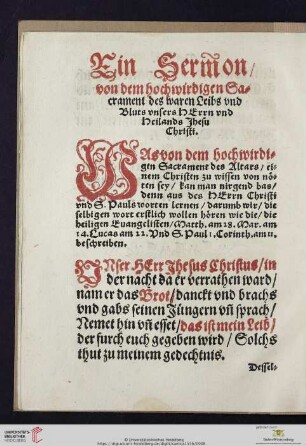 Ein Sermon/
von dem hochwirdigen Sa-
crament des waren Leibs vnd
Bluts vnsers HErrn vnd
Heilands Jhesu
Christi.
WAs von dem hochwirdi-
gen Sacrament des Altars/ ei-
nem Christen zu wissen von nö-
ten sey/ kan man nirgend bas/
denn aus des HErrn Christi
vnd S. Pauls worten lernen/ darumb wir/ die
selbigen wort erstlich wollen hören wie die/ die
heiligen Euangelisten/ Matth. am 28. Mar. am
14. Lucas am 22. Vnd S. Paul 1. Corinth. am 11.
beschreiben.
VNser HErr Jhesus Christus/ in
der nacht da er verrathen ward/
nam er das Brot/ danckt vnd brachs
vnd gabs seinen Jüngern vñ sprach/
Nemet hin vñ esset/ das ist mein Leib/
der furch euch gegeben wird/ Solchs
thut zu meinem gedechtnis.
Dessel-
UNIVERSITÄTS-
BIBLIOTHEK
HEIDELBERG
© Universitätsbibliothek Heidelberg